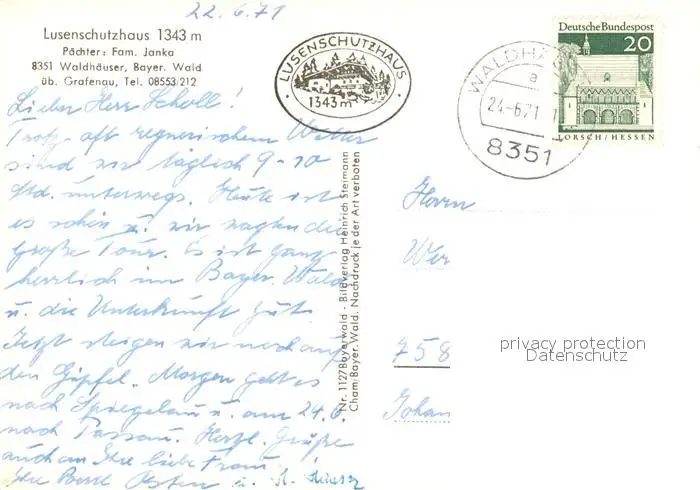 22.6.71
Lusenschutzhaus 1343 m
Pächter: Fam. Janka
8351 Waldhäuser, Bayer. Wald
üb. Grafenau, Tel. 08553/212
LUSENSCHUTZHAUS
1343 m
WALDHÄ
a
24.-6.71
8351
Deutsche Bundespost
20
LORSCH/HESSEN
Lieber Herr Scholl!
Trotz oft regnerischem Wetter
sind wir täglich 9-10
Std. unterwegs. Heute ist
es schön u. wir wagten die
große Tour. Es ist ganz
herrlich im Bayer. Wald
u. die Unterkunft gut.
Jetzt steigen wir noch auf
den Gipfel. Morgen geht es
nach Spiegelau u. am 24.6.
nach Passau. Herzl. Grüße
auch an Ihre liebe Frau
Ihre u.
Nr. 1127 Bayerwald - Bildverlag Heinrich Steimann
Cham/Bayer. Wald. Nachdruck je der Art verboten
Herrn
Wer
758
Johan
privacy protection
Datenschutz